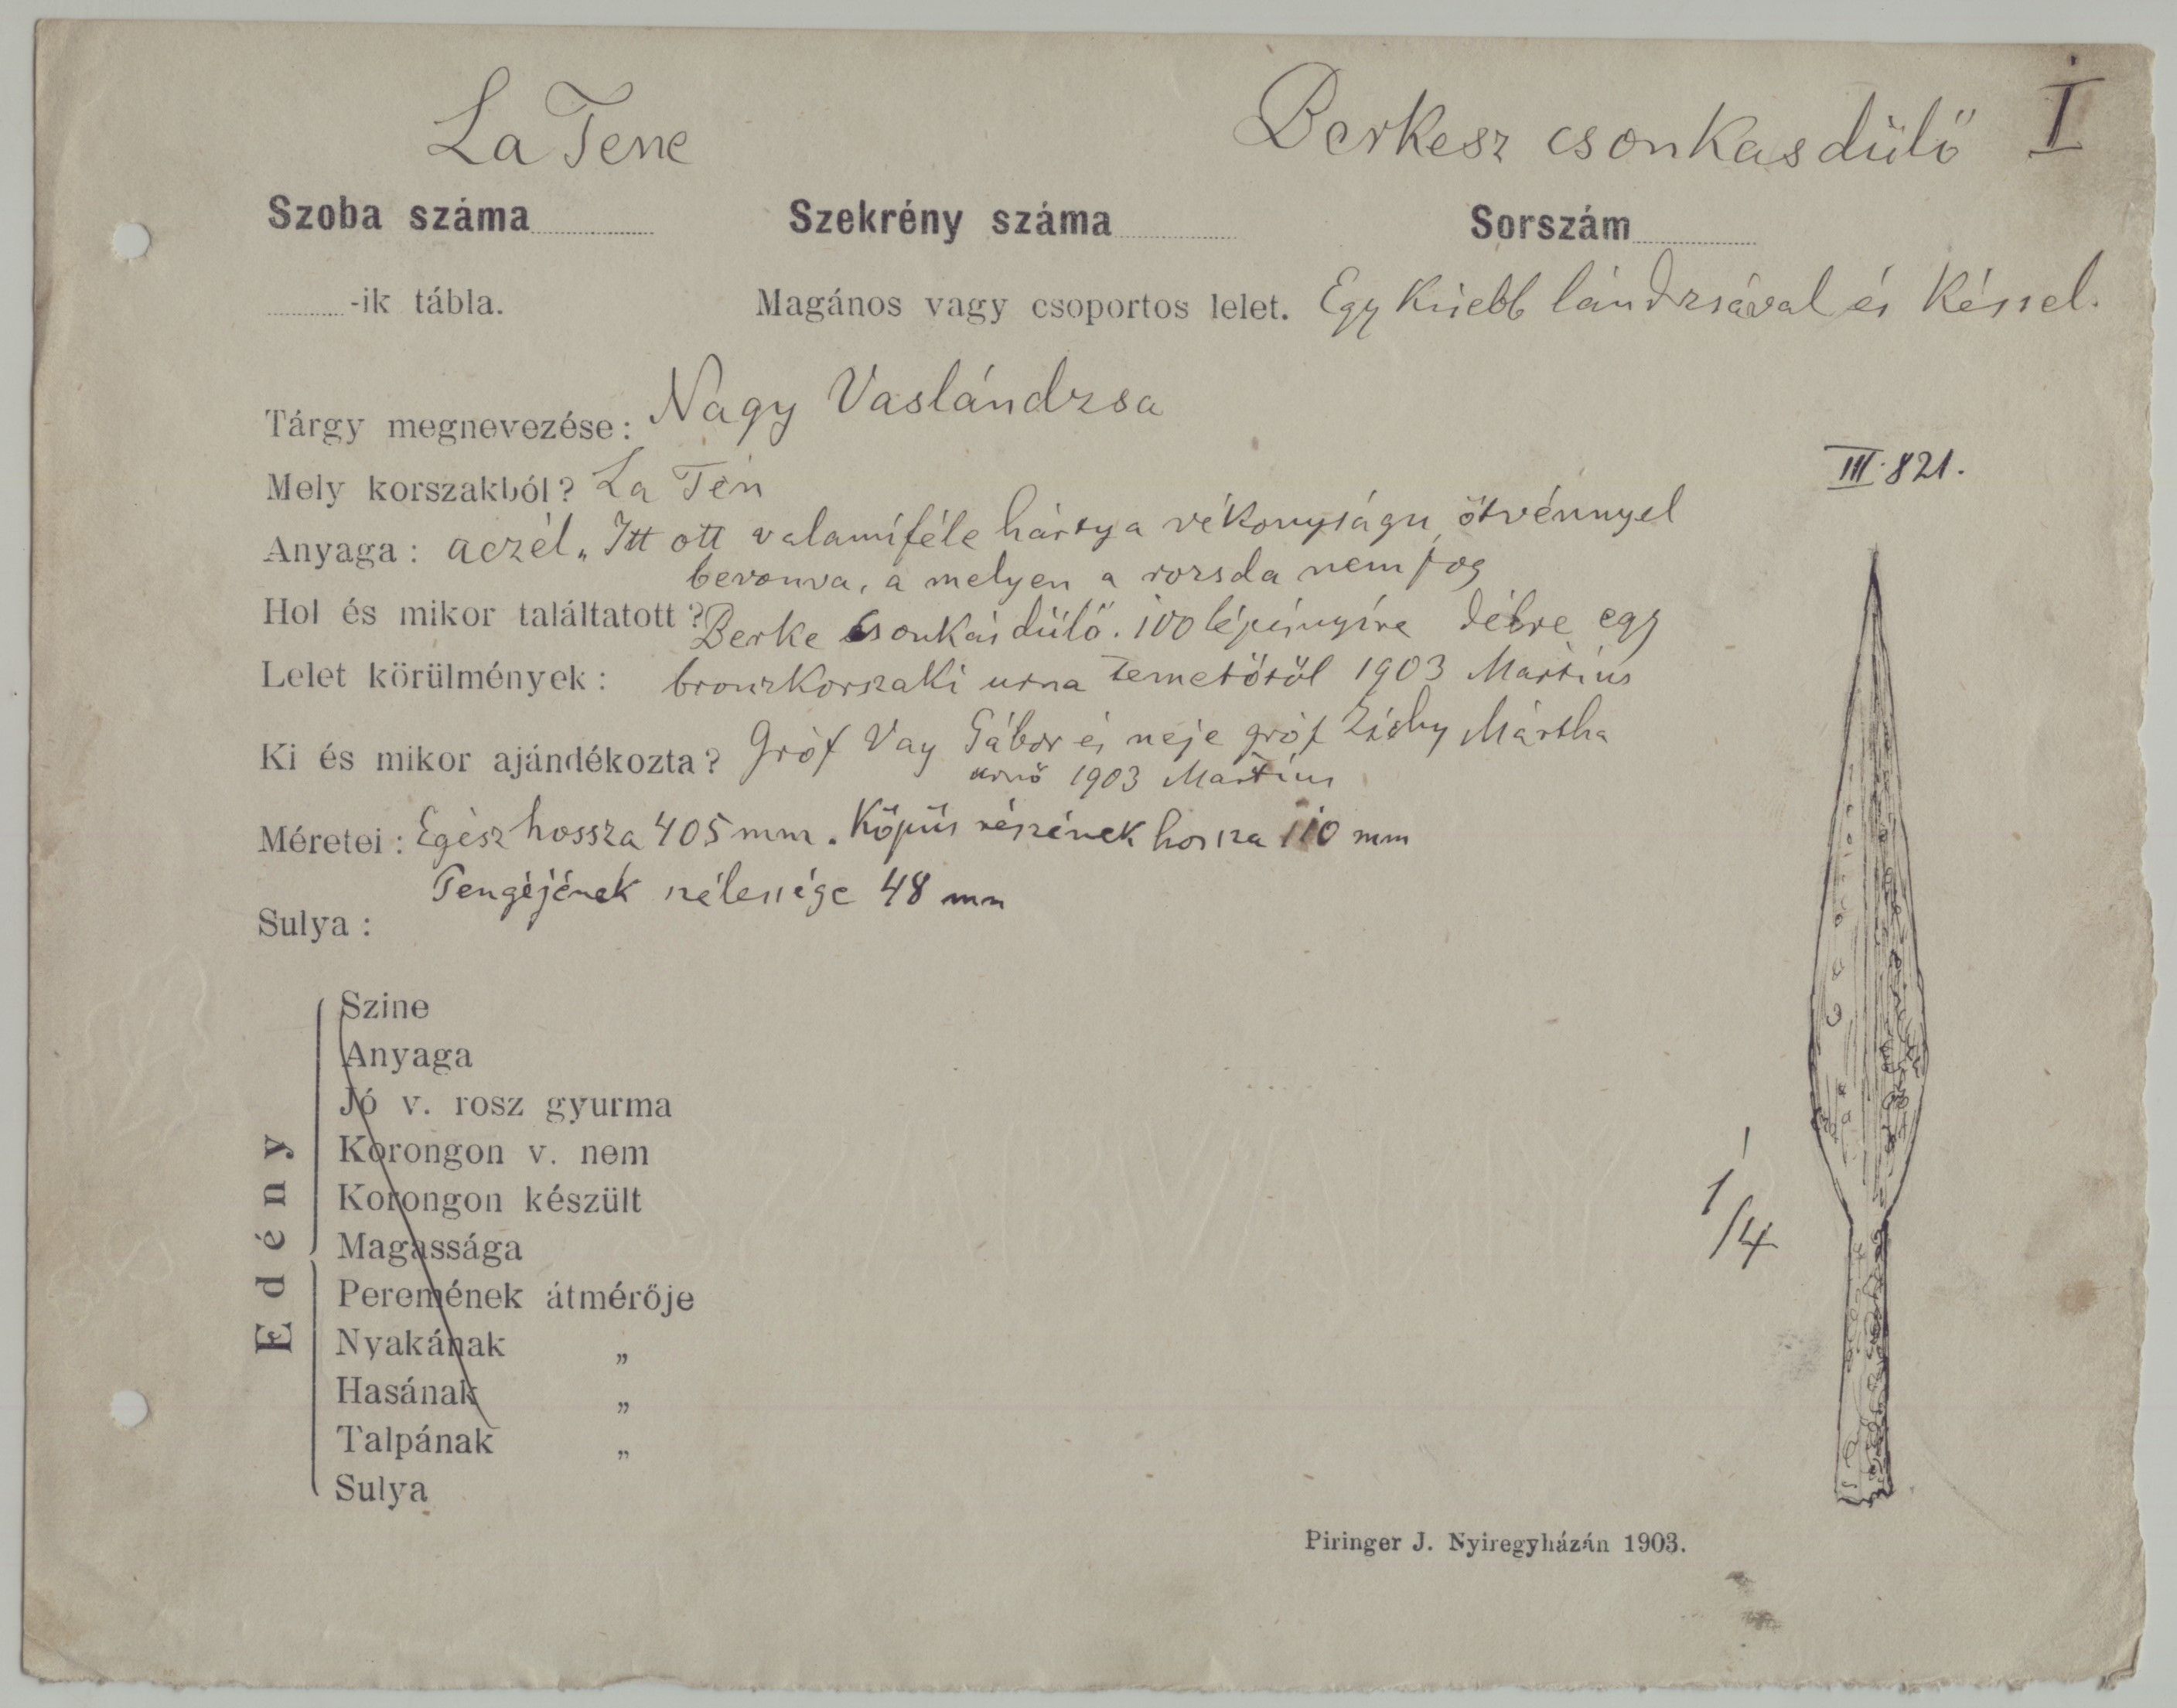 La Tene
Berkesz csonkasdülő I
Szoba száma
Szekrény száma
Sorszám
-ik tábla.
Magános vagy csoportos lelet. Egy kisebb lándzsával és késsel.
Tárgy megnevezése: Nagy Vaslándzsa
III. 821.
Mely korszakból? La Tén
Anyaga: aczél. Itt ott valamiféle hártya vékonyságu ötvénnyel
bevonva, a melyen a rozsda nem fog
Hol és mikor találtatott? Berke Csonkás dülő. 100 lépésnyire délre egy
Lelet körülmények: bronzkorszaki urna temetőtől 1903 Martius
Ki és mikor ajándékozta? Gróf Vay Gábor és neje gróf Zichy Mártha
urnő 1903 Martius
Méretei: Egész hossza 405 mm. Köpüs részének hossza 110 mm
Pengéjének szélessége 48 mm
Sulya:
Edény
Szine
Anyaga
Jó v. rosz gyurma
Korongon v. nem
Korongon készült
Magassága
1/4
Peremének átmérője
Nyakának „
Hasának „
Talpának „
Sulya
Piringer J. Nyiregyházán 1903.